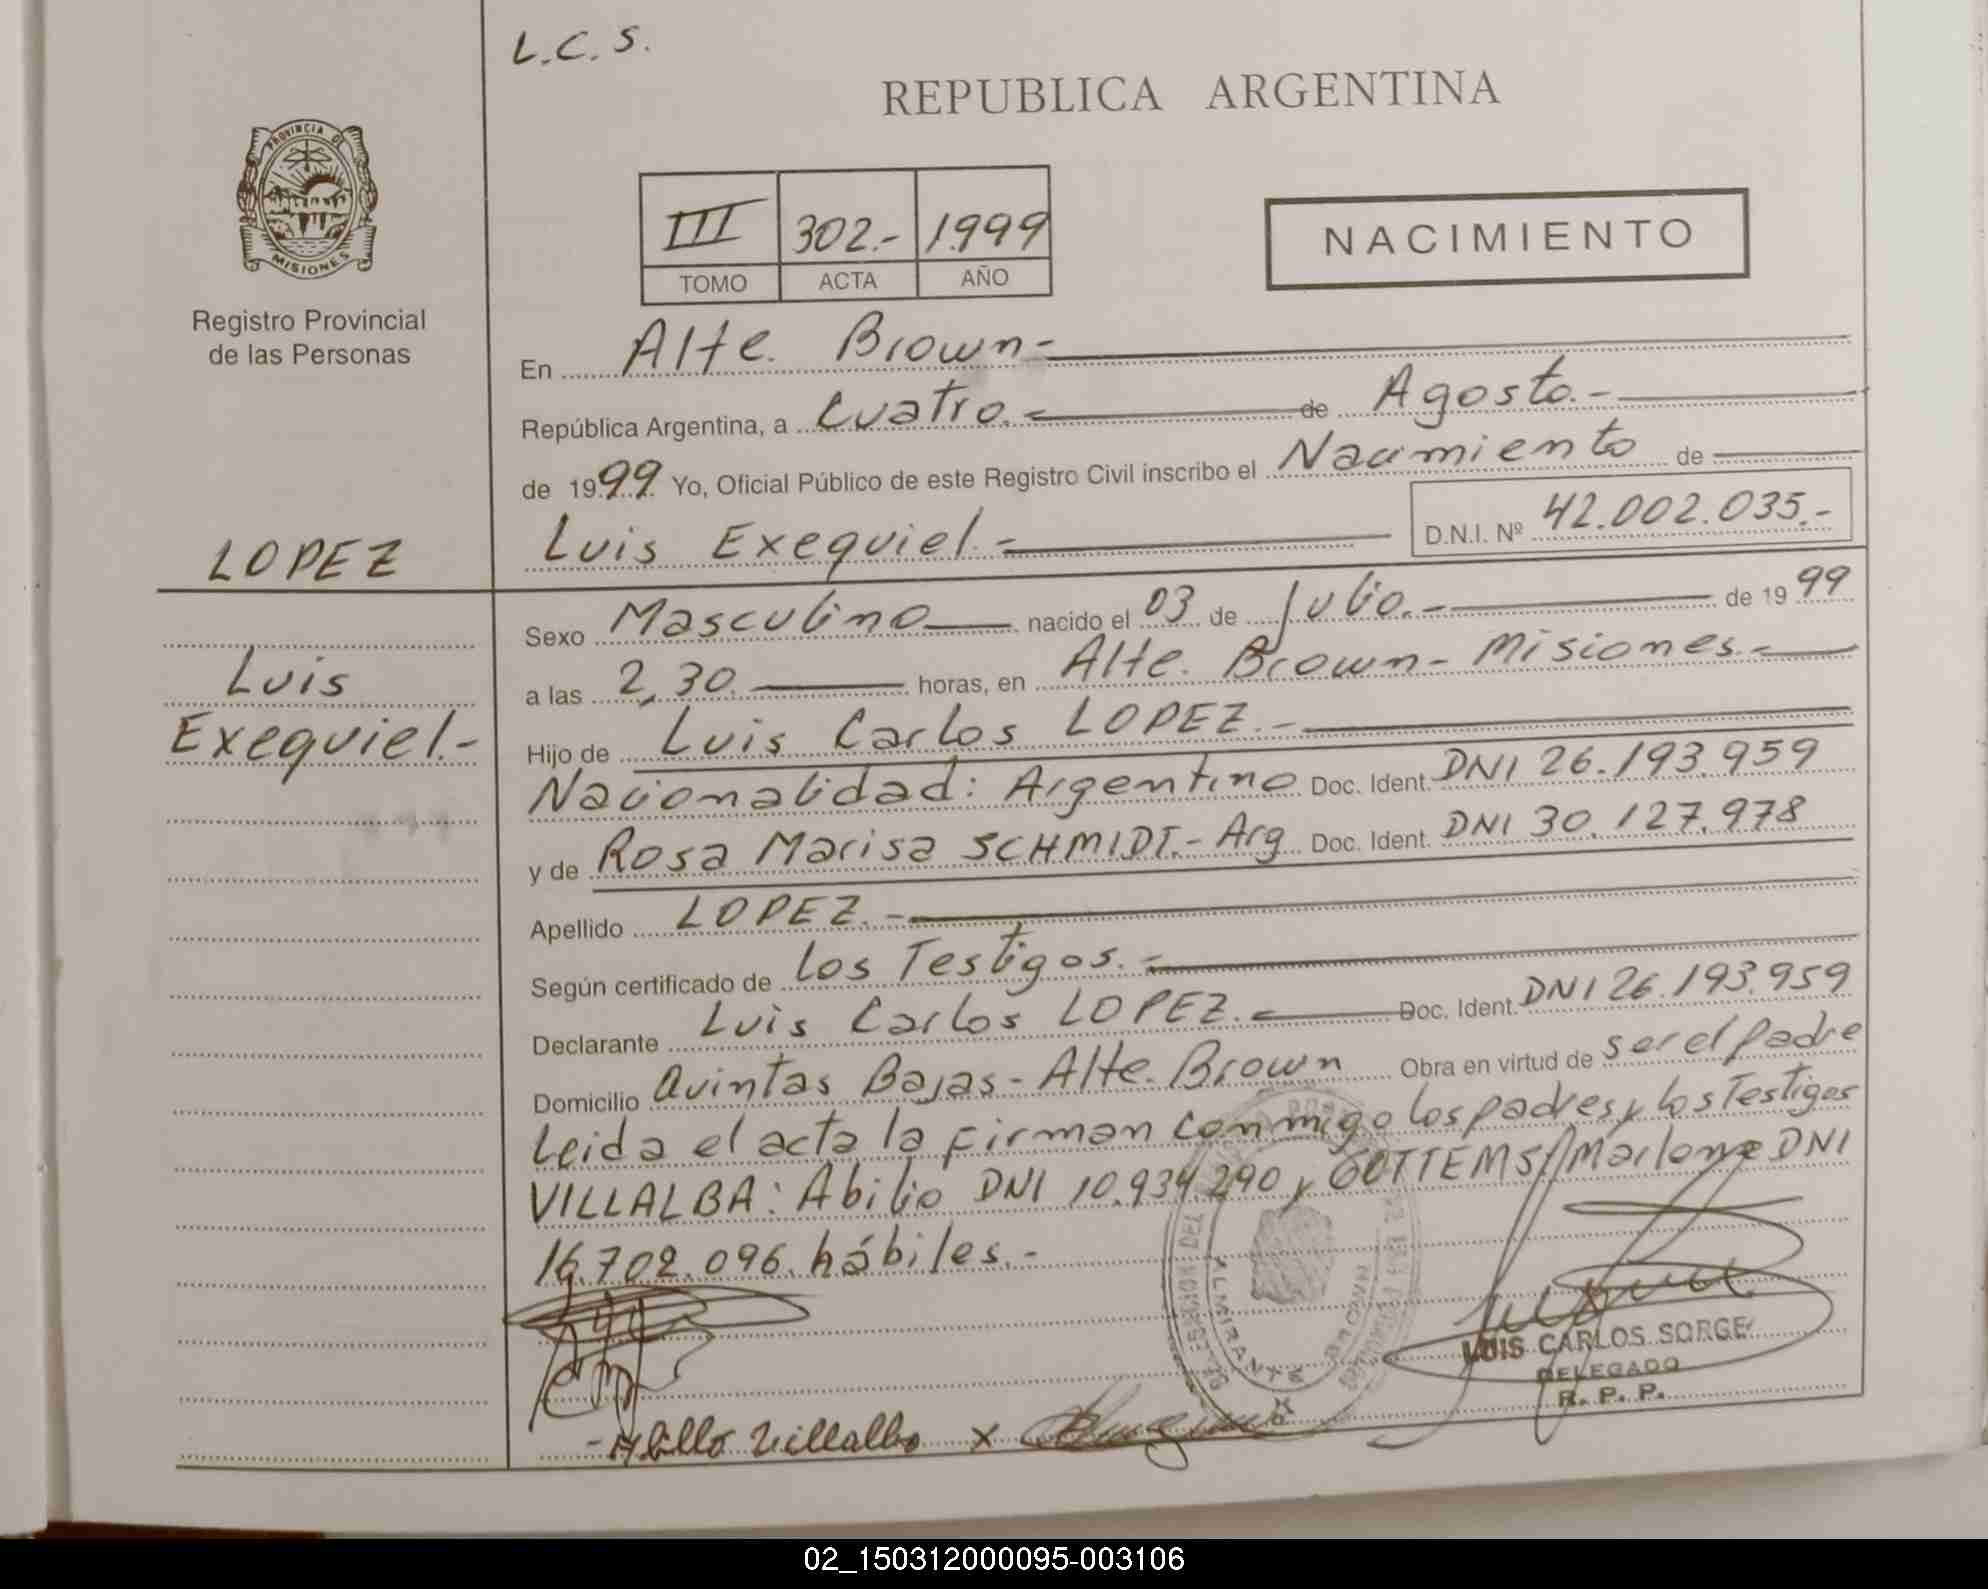 L.C.S.
REPUBLICA ARGENTINA
PROVINCIA DE
MISIONES
Registro Provincial
de las Personas
III 302.- 1999
TOMO ACTA AÑO
NACIMIENTO
En Alte. Brown-
República Argentina, a Cuatro.- de Agosto.-
de 1999 Yo, Oficial Público de este Registro Civil inscribo el Nacimiento de
Luis Exequiel.- D.N.I. Nº 42.002.035.-
LOPEZ
Luis
Exequiel.-
Sexo Masculino nacido el 03 de Julio.- de 1999
a las 2,30. horas, en Alte. Brown- Misiones.-
Hijo de Luis Carlos LOPEZ.-
Nacionalidad: Argentino Doc. Ident. DNI 26.193.959
y de Rosa Marisa SCHMIDT.- Arg Doc. Ident. DNI 30.127.978
Apellido LOPEZ.-
Según certificado de los Testigos.-
Declarante Luis Carlos LOPEZ. Doc. Ident. DNI 26.193.959
Domicilio Quintas Bajas- Alte. Brown Obra en virtud de ser el padre
Leida el acta la firman conmigo los padres y los Testigos
VILLALBA: Abilio DNI 10.934.290 y GOTTEMS Marlone DNI
16.702.096. hábiles.-
ALMIRANTE BROWN
LUIS CARLOS SORGE
DELEGADO
R. P. P.
-Abilio Villalba x
02_150312000095-003106